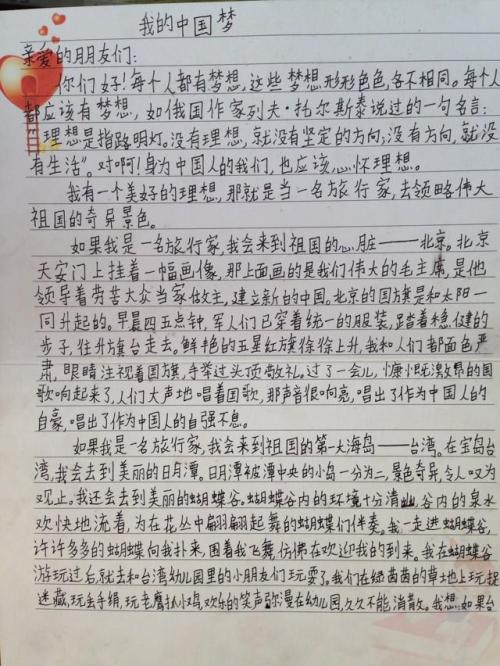 我的中国梦
亲爱的朋友们:
你们好!每个人都有梦想,这些梦想形形色色,各不相同。每个人
都应该有梦想,如俄国作家列夫·托尔斯泰说过的一句名言:
“理想是指路明灯。没有理想,就没有坚定的方向;没有方向,就没
有生活”。对啊!身为中国人的我们,也应该心怀理想。
我有一个美好的理想,那就是当一名旅行家,去领略伟大
祖国的奇异景色。
如果我是一名旅行家,我会来到祖国的心脏——北京。北京
天安门上挂着一幅画像,那上面画的是我们伟大的毛主席,是他
领导着劳苦大众当家做主,建立新的中国。北京的国旗是和太阳一
同升起的。早晨四五点钟,军人们已穿着统一的服装,踏着稳健的
步子,往升旗台走去。鲜艳的五星红旗徐徐上升,我和人们都面色严
肃,眼睛注视着国旗,手举过头顶敬礼。过了一会儿,慷慨激昂的国
歌响起来了,人们大声地唱着国歌,那声音很响亮,唱出了作为中国人的
自豪,唱出了作为中国人的自强不息。
如果我是一名旅行家,我会来到祖国的第一大海岛——台湾。在宝岛台
湾,我会去到美丽的日月潭。日月潭被潭中央的小岛一分为二,景色奇异,令人叹为
观止。我还会去到美丽的蝴蝶谷。蝴蝶谷内的环境十分清幽,谷内的泉水
欢快地流着,为在花丛中翩翩起舞的蝴蝶们伴奏。我一走进蝴蝶谷,
许许多多的蝴蝶向我扑来,围着我飞舞,仿佛在欢迎我的到来。我在蝴蝶谷
游玩过后,就去和台湾幼儿园里的小朋友们玩耍了。我们在绿茵茵的草地上玩捉
迷藏,玩丢手绢,玩老鹰抓小鸡,欢乐的笑声弥漫在幼儿园,久久不能消散。我想:如果台